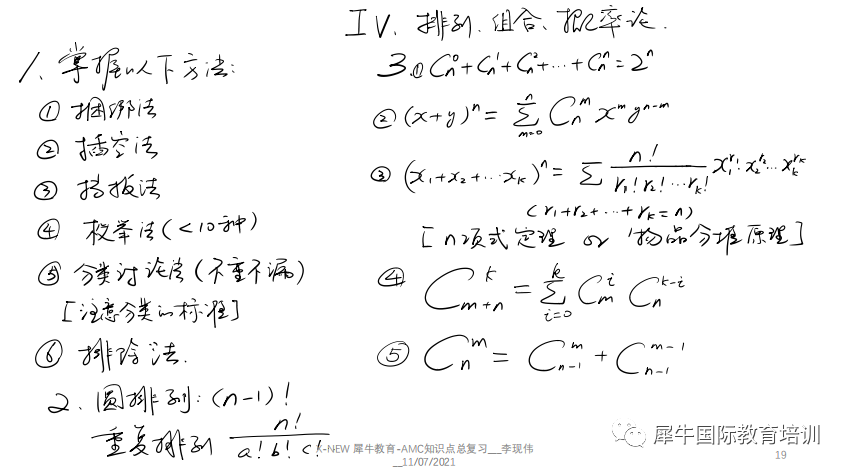 IV、排列、组合、概率论.
1、掌握以下方法:
① 捆绑法
② 插空法
③ 挡板法
④ 枚举法(<10种)
⑤ 分类讨论法(不重不漏)
[注意分类的标准]
⑥ 排除法.
2、圆排列:(n-1)!
重复排列 n!/(a!b!c!)
3.① C_n^0+C_n^1+C_n^2+…+C_n^n=2^n
② (x+y)^n = ∑_{m=0}^{n} C_n^m x^m y^{n-m}
③ (x_1+x_2+…x_k)^n = ∑ n!/(r_1!r_2!…r_k!) x_1^{r_1}·x_2^{r_2}…x_k^{r_k}
(r_1+r_2+…+r_k=n)
[n项式定理 or 物品分堆原理]
④ C_{m+n}^k = ∑_{i=0}^{k} C_m^i C_n^{k-i}
⑤ C_n^m = C_{n-1}^m + C_{n-1}^{m-1}
X-NEW 犀牛教育-AMC知识点总复习__李现伟
__11/07/2021
犀牛国际教育培训
19